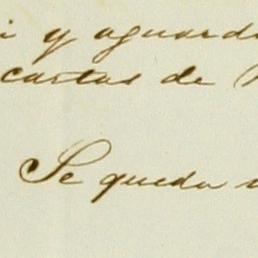 y aguard
cartas de
Se queda